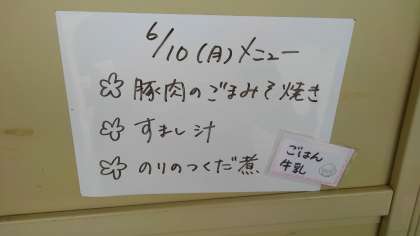 6/10(月)メニュー
豚肉のごまみそ焼き
すまし汁
のりのつくだ煮
ごはん
牛乳